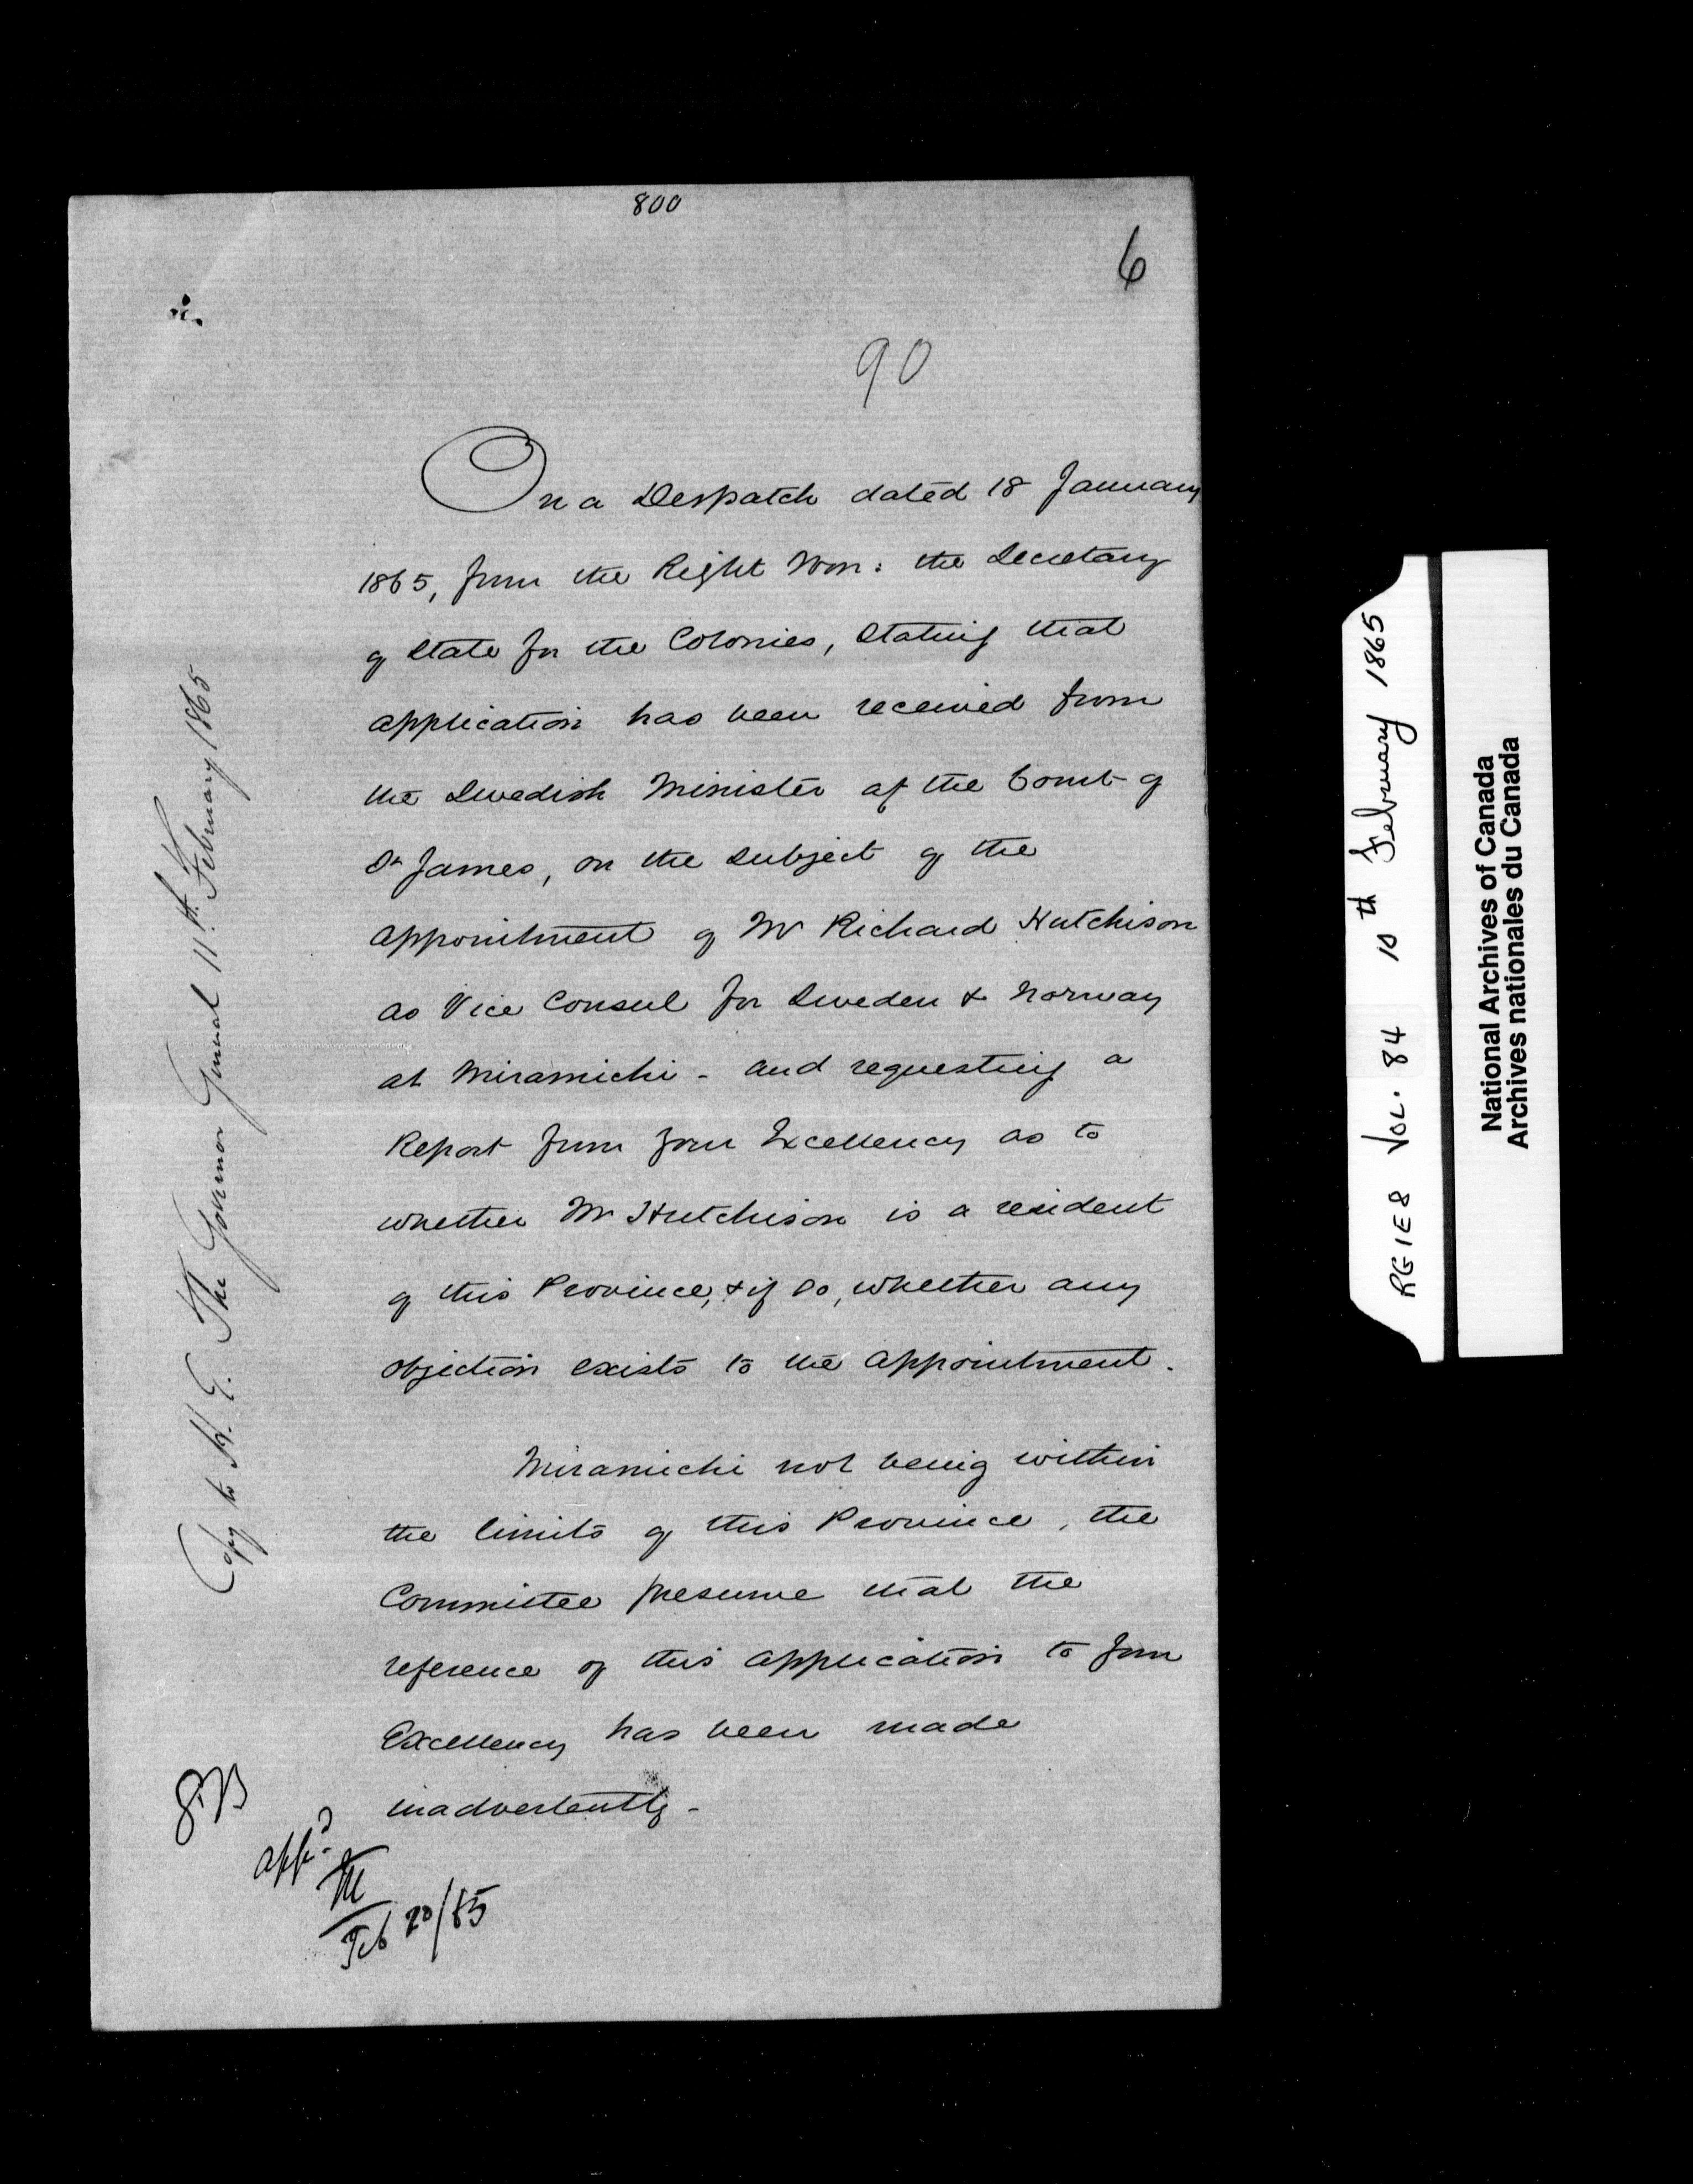 800
6
90
On a Despatch dated 18 January
1865, from the Right Hon: the Secretary
of State for the Colonies, stating that
application has been received from
the Swedish Minister at the Court of
St James, on the subject of the
appointment of Mr Richard Hutchison
as Vice Consul for Sweden & Norway
at Miramichi - and requesting a
Report from Your Excellency as to
whether Mr Hutchison is a resident
of this Province, & if so, whether any
objection exists to the appointment.
Miramichi not being within
the limits of this Province, the
Committee presume that the
reference of this application to Your
Excellency has been made
inadvertently -
Copy to H. E. The Governor General 11th February 1865
appd
M
Feb 20/65
RG1E8 VOL. 84 10th February 1865
National Archives of Canada
Archives nationales du Canada